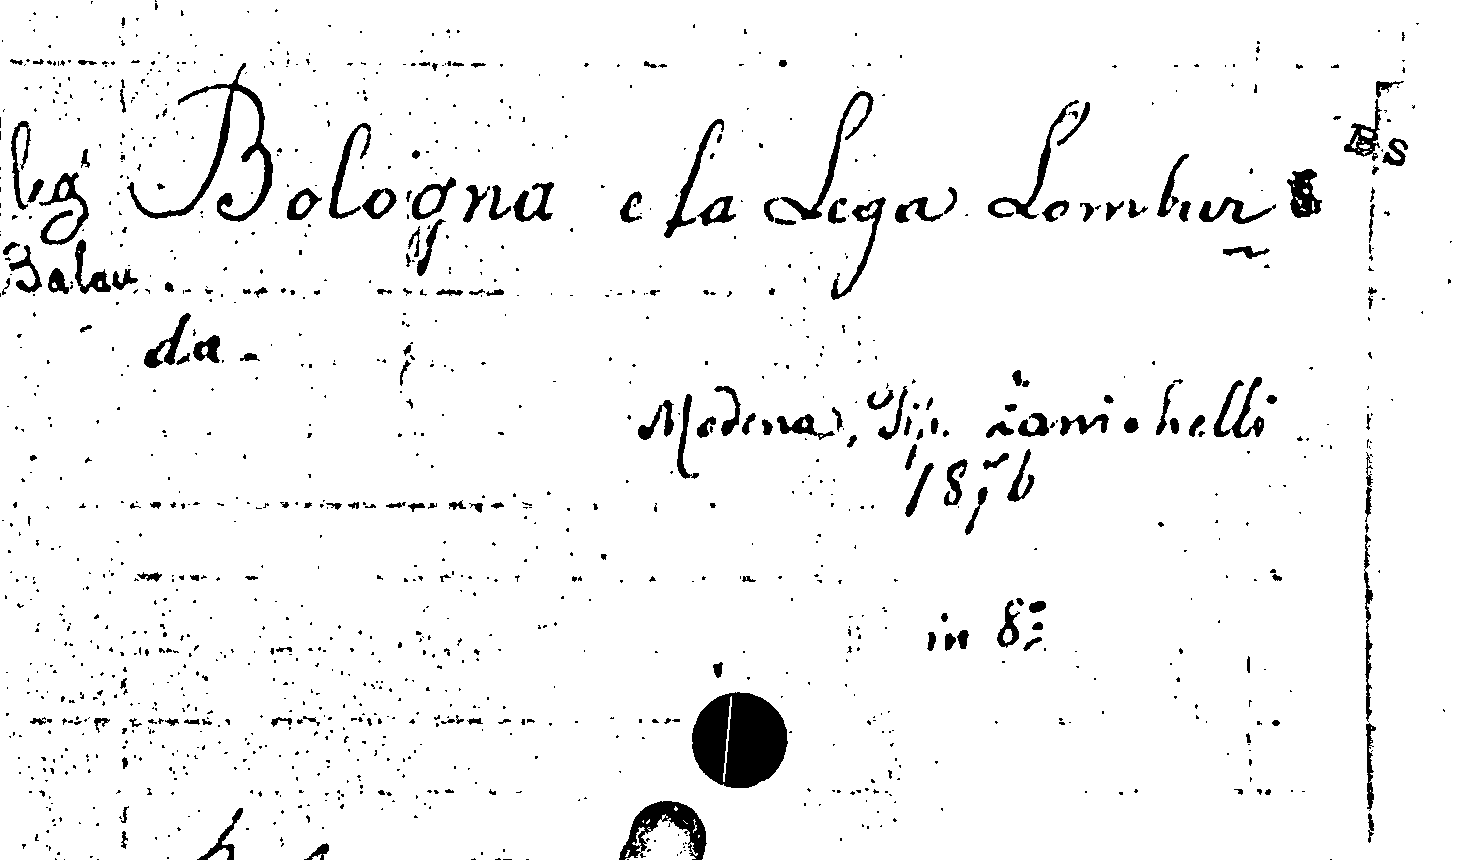 leg Bologna e la Lega Lombar
B S
Balau
da -
Modena, Tip. Zanichelli
1876
in 8°